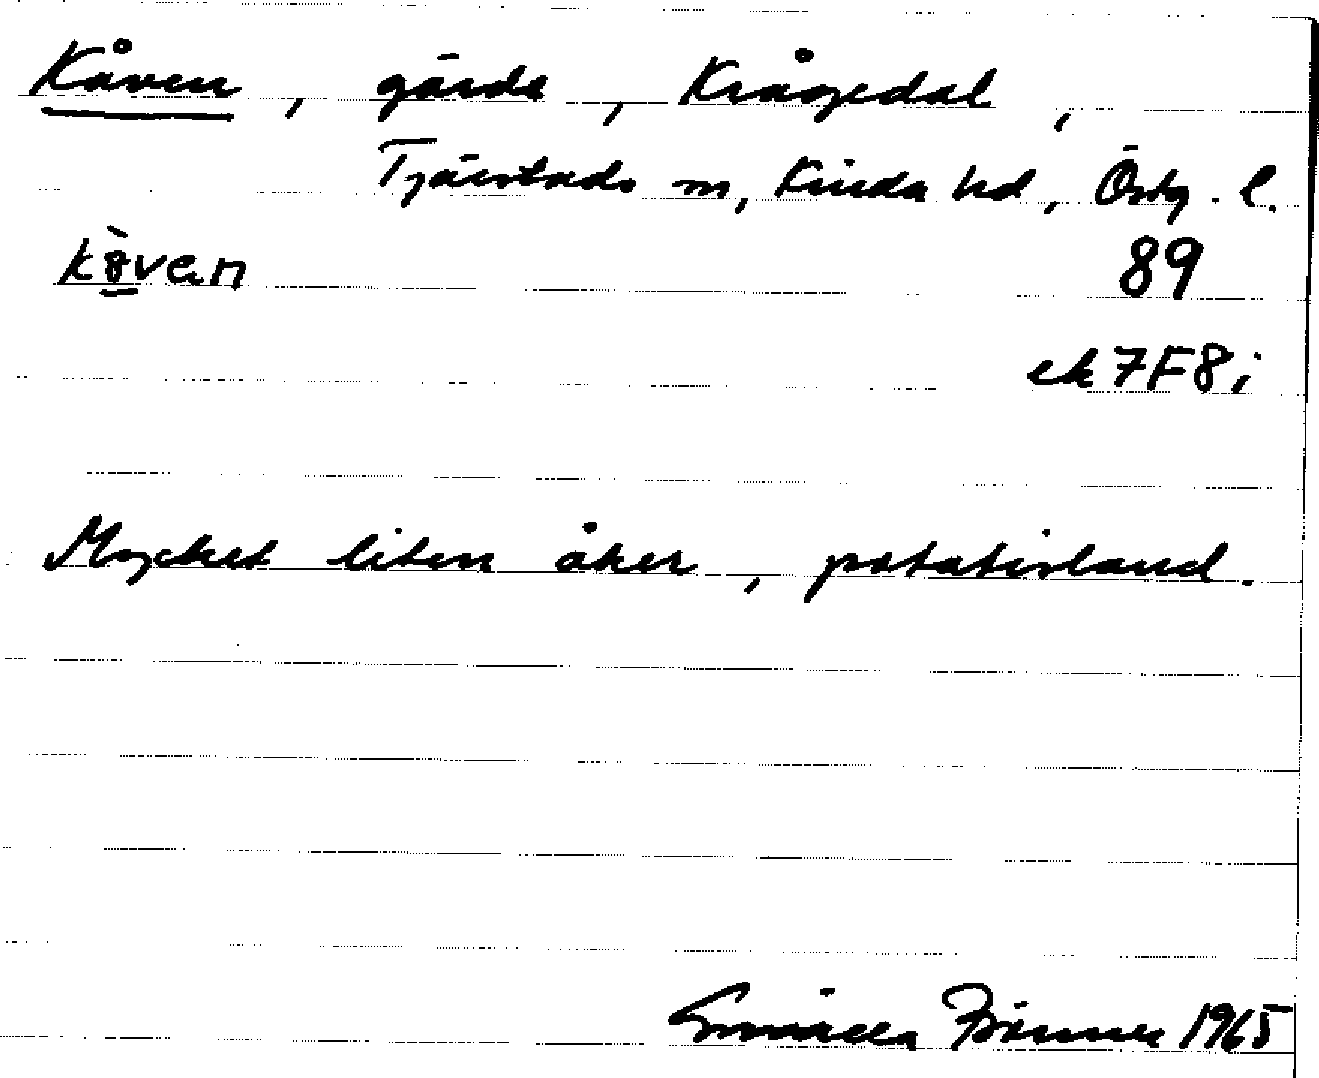 Kåven, gärde, Krågedal,
Tjärstads sn, Kinda hd, Östg. l.
k8̀ven
89
ek 7F8i
Mycket liten åker, potatisland.
1965